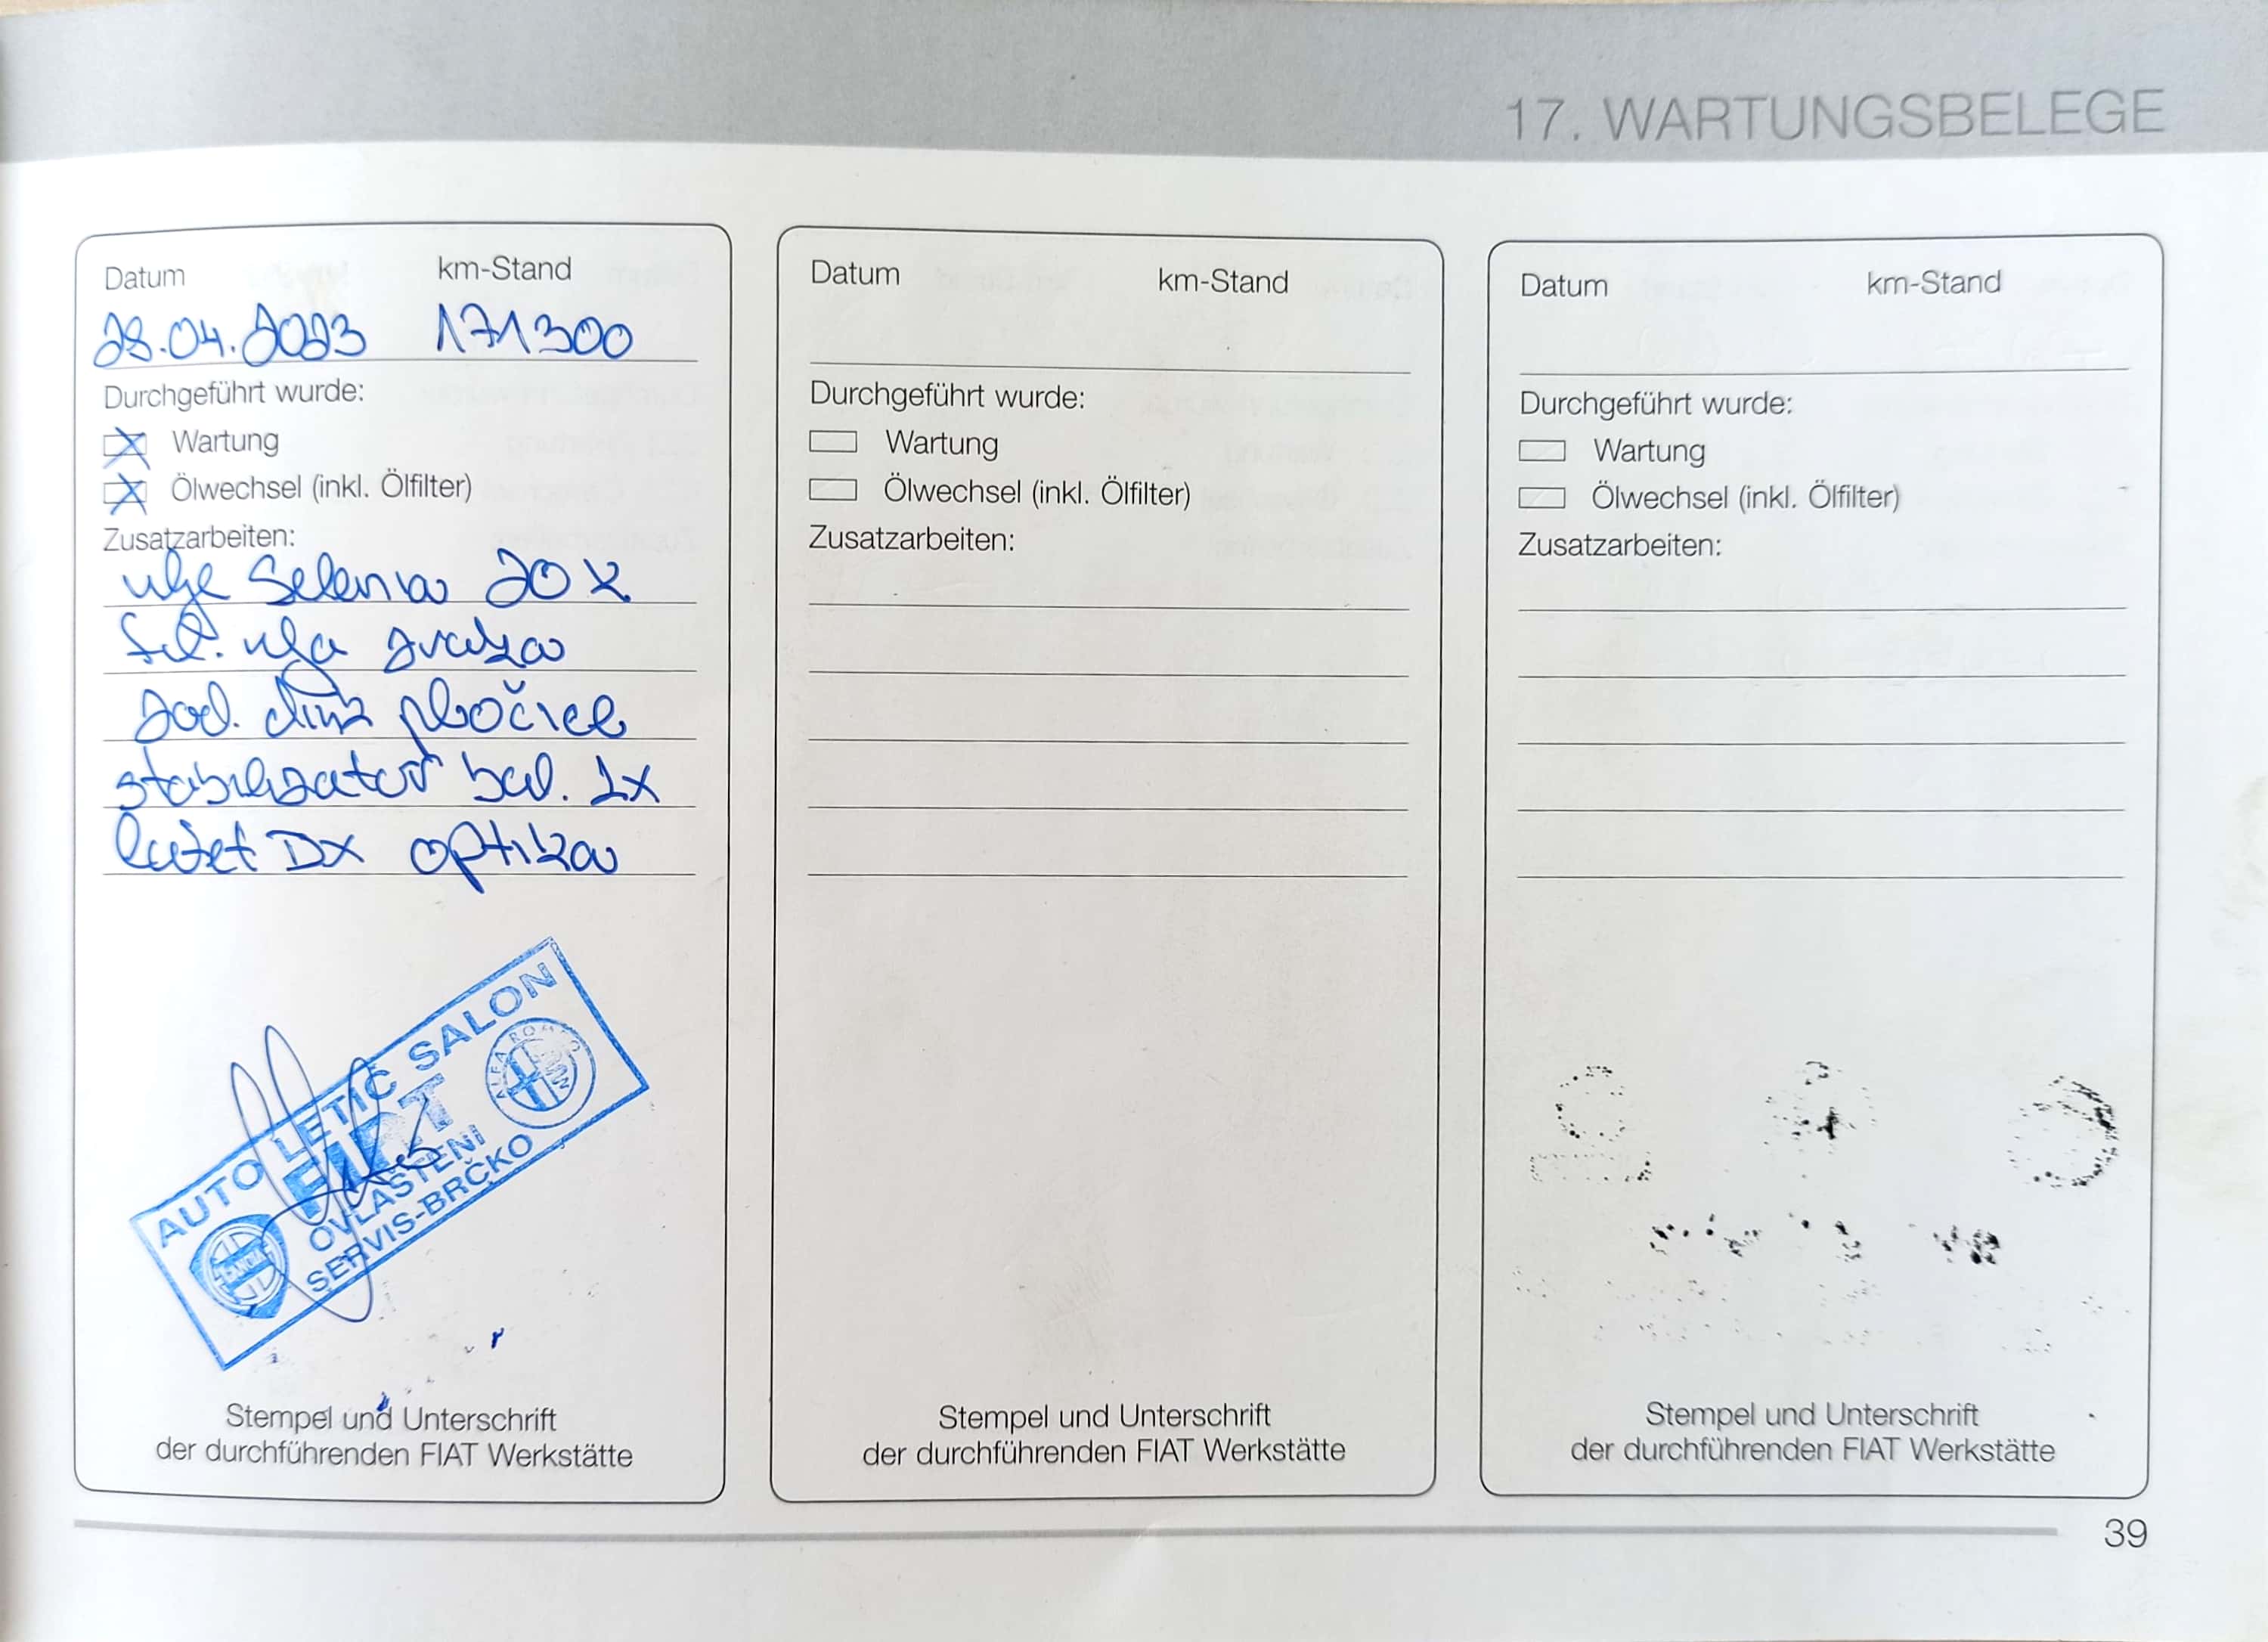 17. WARTUNGSBELEGE
Datum km-Stand
28.04.2023 171300
Durchgeführt wurde:
Wartung
Ölwechsel (inkl. Ölfilter)
Zusatzarbeiten:
ulje Selenia 20 K
fil. ulja zraka
zad. disk pločice
stabilizator bal. 2x
lužet DX optika
AUTO LETIC SALON
FIAT
OVLAŠTENI
SERVIS-BRČKO
ALFA ROMEO
Stempel und Unterschrift
der durchführenden FIAT Werkstätte
Datum km-Stand
Durchgeführt wurde:
Wartung
Ölwechsel (inkl. Ölfilter)
Zusatzarbeiten:
Stempel und Unterschrift
der durchführenden FIAT Werkstätte
Datum km-Stand
Durchgeführt wurde:
Wartung
Ölwechsel (inkl. Ölfilter)
Zusatzarbeiten:
Stempel und Unterschrift
der durchführenden FIAT Werkstätte
39